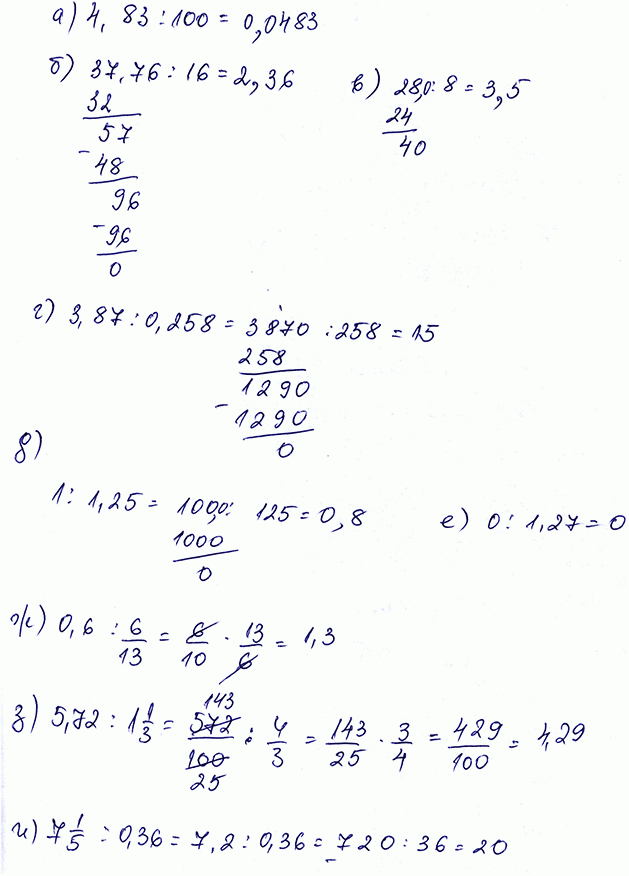 а) 4,83 : 100 = 0,0483
б) 37,76 : 16 = 2,36
32
57
- 48
96
- 96
0
в) 28,0 : 8 = 3,5
24
40
г) 3,87 : 0,258 = 3870 : 258 = 15
258
1290
- 1290
0
д)
1 : 1,25 = 100,0 : 125 = 0,8
1000
0
е) 0 : 1,27 = 0
ж) 0,6 : 6/13 = 6/10 · 13/6 = 1,3
143
з) 5,72 : 1 1/3 = 572/100 : 4/3 = 143/25 · 3/4 = 429/100 = 4,29
25
и) 7 1/5 : 0,36 = 7,2 : 0,36 = 720 : 36 = 20